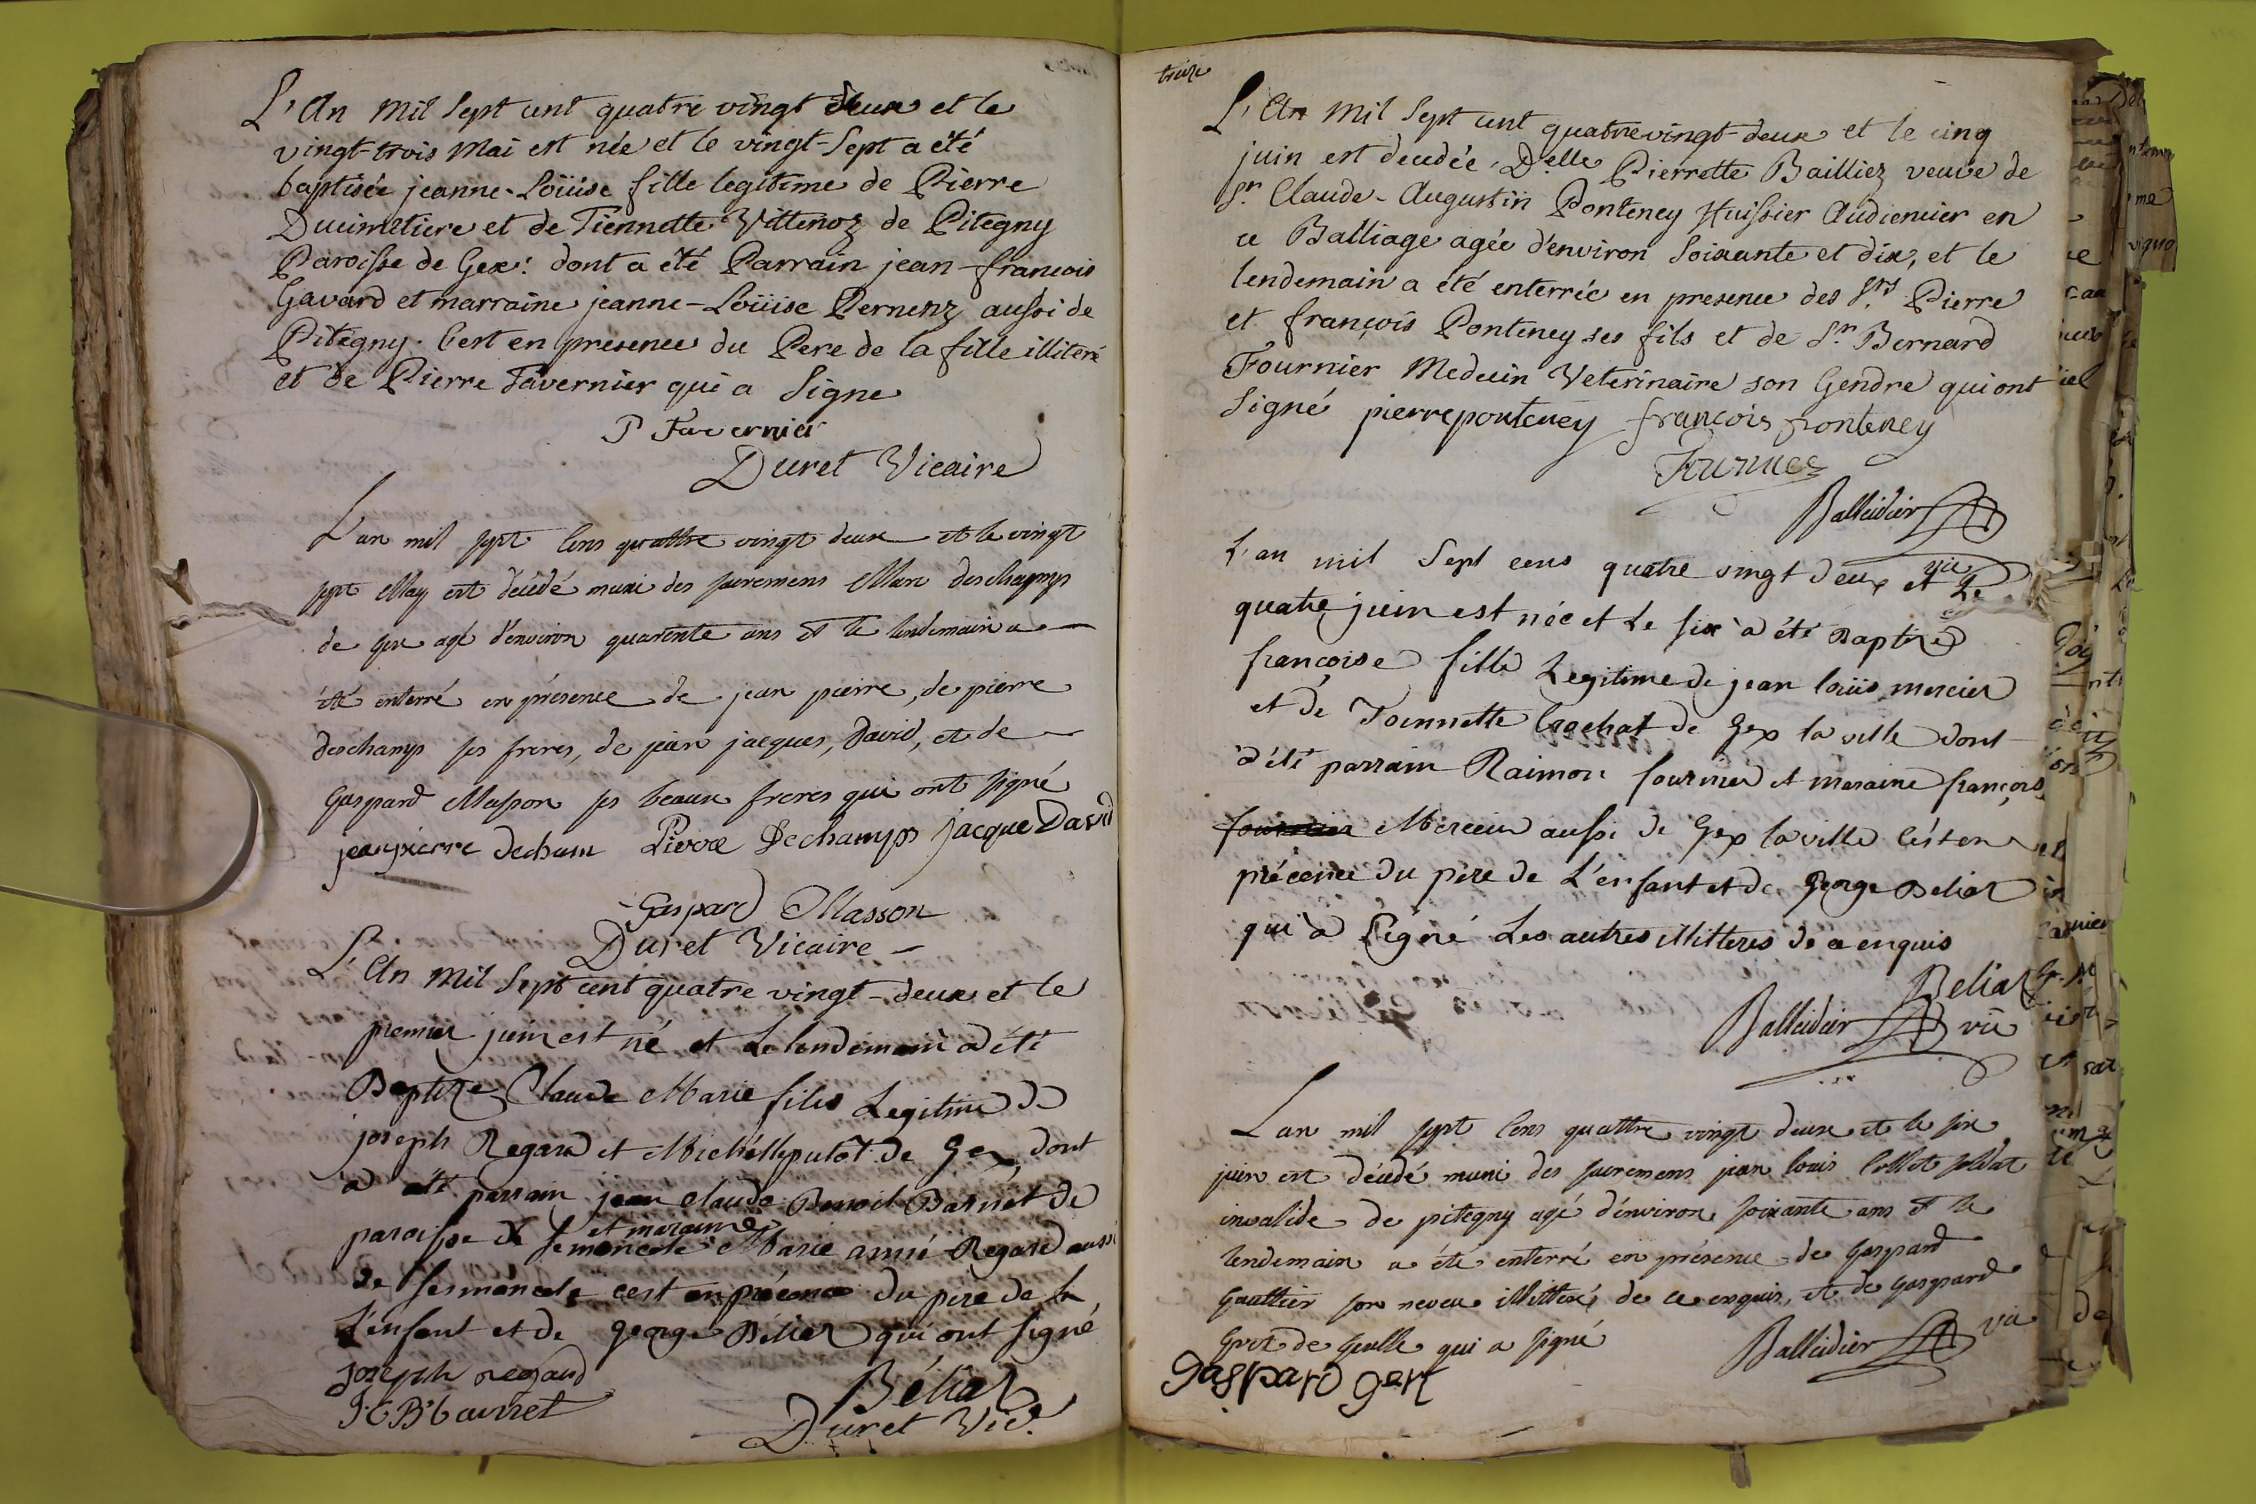 L'An mil Sept cent quatre vingt deux et le
vingt-trois Mai est née et le vingt-Sept a été
baptisée jeanne-Loüise fille legitime de Pierre
Ducimetiere et de Tiennette Vittenoz de Pitegny
Paroisse de Gex: dont a été Parrain jean-francois
Gavard et marraine jeanne-Loüise Pernenz aussi de
Pitegny. C'est en présence du Pere de la fille illiteré
et de Pierre Tavernier qui a Signe
P Tavernier
Duret Vicaire
L'an mil sept Cens quattre vingt deux et le vingt
sept May est décédé muni des sacremens Marc deschamps
de Gex agé d'environ quarente ans et le lendemain a
été enterré en présence de jean pierre, de pierre
deschamps ses freres, de jean jacques, David, et de
Gaspard Masson ses beaux freres qui ont signé
jeanpierre decham Pierre Dechamps jacque David
Gaspard Masson
Duret Vicaire
L'An Mil Sept cent quatre vingt-deux et le
premier juin est né et Le lendemain a été
Baptize Claude Marie filis Legitime de
joseph Regard et Michelle putôt de Gex dont
a été parrain jean claude Benoit Barnet de
paroisse de Sermoncele et maraine Marie amié Regard aussi
de sermoncele cest en présence du pere de la
L'enfant et de george Béliar qui ont signé
joseph regard
J C B Barnet
Béliar
Duret Vic.e
treize
L'An Mil Sept cent quatrevingt-deux et le cinq
juin est decedée, D.elle Pierrette Bailliez veuve de
S.r Claude-Augustin Ponteney Huissier Audiencier en
ce Balliage agée d'environ Soixante et dix, et le
lendemain a été enterrée en presence des S.rs Pierre
et françois Ponteney ses fils et de S.r Bernard
Fournier Medecin Veterinaire son Gendre qui ont
Signé pierreponteney françois ponteney
Fournier
Balleidier
vu
L'an mil Sept cens quatre vingt deux et Le
quatre juin est née et Le six a été Baptizé
françoise fille Legitime de jean loüis mercier
et de Toinnette Crochat de Gex la ville dont
a été parrain Raimon fournier et maraine françois
Merciere aussi de Gex la ville C'est en
précence du pere de L'enfant et de George Béliar
qui a Signé Les autres illitteres de ce enquis
Beliar
Balleidier vu
L'an mil sept Cens quattre vingt deux et le six
juin est décédé muni des sacremens jean louis Collet soldat
invalide de pitegny agé d'environ soixante ans et le
lendemain a été enterré en présence de Gaspard
Gaultier son neveu illitteré, de ce enquis, et de Gaspard
Gert de Geulle qui a signé Balleidier vu
Gaspard gert